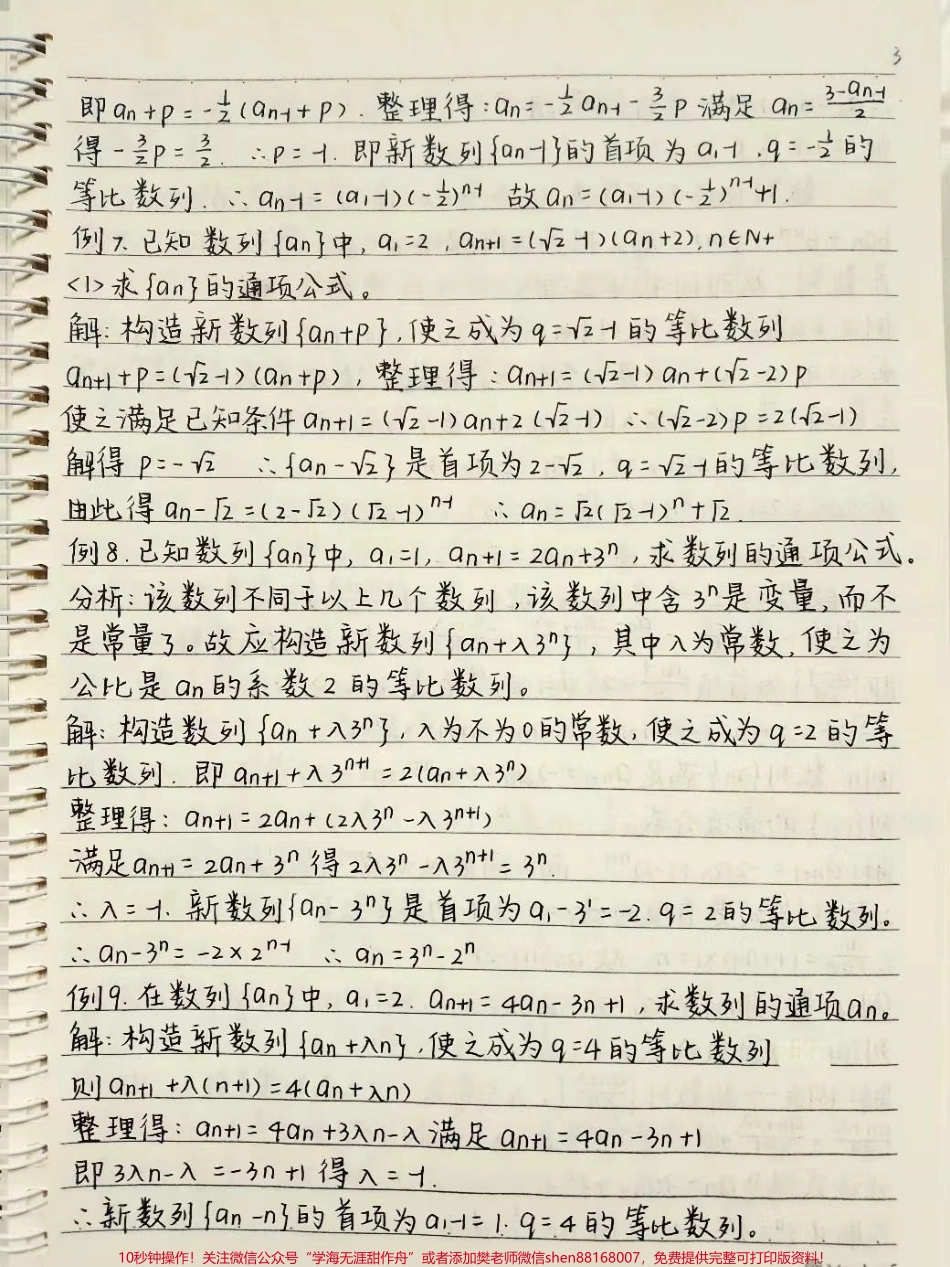 3
即an+p=-½(an-1+p).整理得:an=-½an-1-3/2p满足an=(3-an-1)/2
得-3/2p=3/2.∴p=-1.即新数列{an-1}的首项为a₁-1,q=-½的
等比数列.∴an-1=(a₁-1)(-½)ⁿ⁻¹故an=(a₁-1)(-½)ⁿ⁻¹+1.
例7.已知数列{an}中,a₁=2,an+1=(√2-1)(an+2),n∈N+
<1>求{an}的通项公式。
解:构造新数列{an+p},使之成为q=√2-1的等比数列
an+1+p=(√2-1)(an+p),整理得:an+1=(√2-1)an+(√2-2)p
使之满足已知条件an+1=(√2-1)an+2(√2-1)∴(√2-2)p=2(√2-1)
解得p=-√2 ∴{an-√2}是首项为2-√2,q=√2-1的等比数列,
由此得an-√2=(2-√2)(√2-1)ⁿ⁻¹ ∴an=√2(√2-1)ⁿ+√2.
例8.已知数列{an}中,a₁=1,an+1=2an+3ⁿ,求数列的通项公式。
分析:该数列不同于以上几个数列,该数列中含3ⁿ是变量,而不
是常量了。故应构造新数列{an+λ3ⁿ},其中λ为常数,使之为
公比是an的系数2的等比数列。
解:构造数列{an+λ3ⁿ},λ为不为0的常数,使之成为q=2的等
比数列.即an+1+λ3ⁿ⁺¹=2(an+λ3ⁿ)
整理得:an+1=2an+(2λ3ⁿ-λ3ⁿ⁺¹)
满足an+1=2an+3ⁿ得2λ3ⁿ-λ3ⁿ⁺¹=3ⁿ.
∴λ=-1.新数列{an-3ⁿ}是首项为a₁-3¹=-2.q=2的等比数列。
∴an-3ⁿ=-2×2ⁿ⁻¹ ∴an=3ⁿ-2ⁿ
例9.在数列{an}中,a₁=2.an+1=4an-3n+1,求数列的通项an。
解:构造新数列{an+λn},使之成为q=4的等比数列
则an+1+λ(n+1)=4(an+λn)
整理得:an+1=4an+3λn-λ满足an+1=4an-3n+1
即3λn-λ=-3n+1得λ=-1.
∴新数列{an-n}的首项为a₁-1=1.q=4的等比数列。
10秒钟操作!关注微信公众号“学海无涯甜作舟”或者添加樊老师微信shen88168007,免费提供完整可打印版资料!